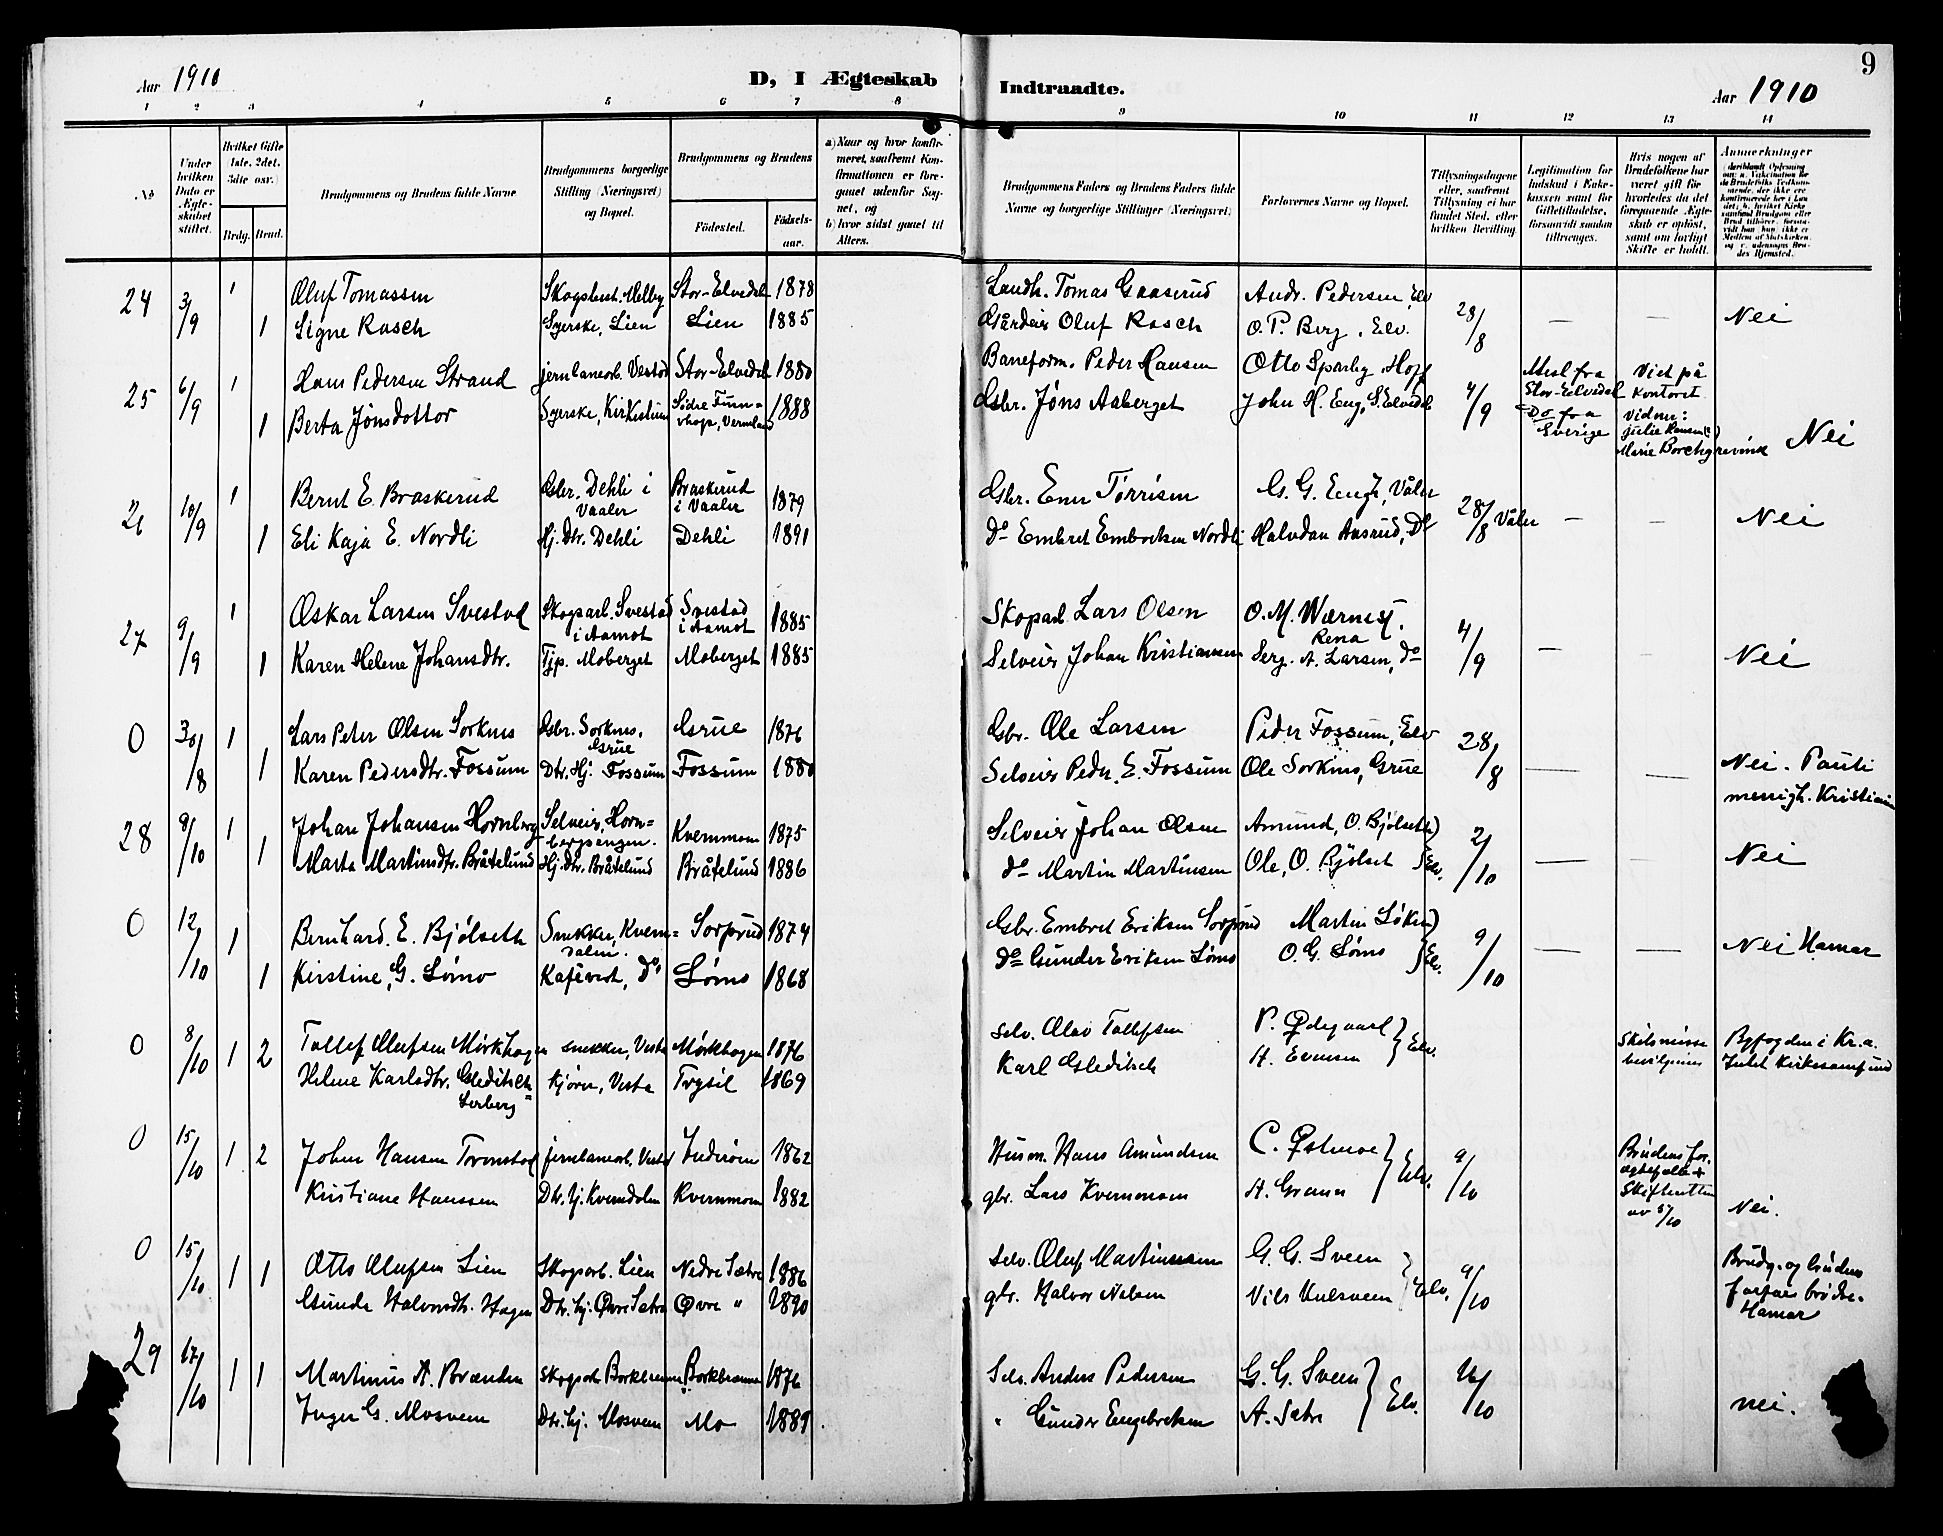 Aar 1910
D, I Ægteskab
Indtraadte.
Aar 1910
9
1 2 3 4 5 6 7 8 9 10 11 12 13 14
No
Under hvilken Dato er Ægteskabet stiftet.
Hvilket Gifte (1ste, 2det, 3die osv.)
Brdg. Brud.
Brudgommens og Brudens fulde Navne
Brudgommens borgerlige Stilling (Næringsvei) og Bopæl.
Brudgommens og Brudens
Fødested.
Fødselsaar.
a) Naar og hvor konfirmeret, saafremt Konfirmationen er foregaaet udenfor Sognet, og
b) hvor sidst gaaet til Alters.
Brudgommens Faders og Brudens Faders fulde Navne og borgerlige Stillinger (Næringsvei)
Forlovernes Navne og Bopæl.
Tillysningsdagene eller, saafremt Tillysning ei har fundet Sted, efter hvilken Bevilling
Legitimation for Indskud i Enkekassen samt for Giftetilladelse, forsaavidt saadan tiltrænges.
Hvis nogen af Brudefolkene har været gift før hvorledes da det foregaaende Ægteskab er opløst, samt om lovligt Skifte er holdt.
Anmerkninger
24 3/9 1 Oluf Tomassen Skogsbest. Melby Stor-Elvedal 1878 Landh. Tomas Gaaserud Andr. Pedersen, Elv 28/8 — — Nei
1 Signe Rasch Syerske, Lien Lien 1885 Gårdeier Oluf Rasch O. P. Berg, Elv.
25 6/9 1 Hans Pedersen Strand jernbanearb. Vestad Stor-Elvedal 1880 Baneform. Peder Hansen Otto Sparby, Hoff 4/9 Mesl fra Stor-Elvedal Do fra Sverige Viet på kontoret. Vidner: Julie Hansen Marie Borchgrevink Nei
1 Berta Jönsdotter Syerske, Kirkestuen Södre Finnskoga, Vermland 1888 Gbr. Jöns Aaberget John H. Eng, S. Elvedal
26 10/9 1 Bernt E. Braskerud Gbr. Dehli i Vaaler Braskerud i Vaaler 1879 Gbr. Ener Torrisen G. G. Engh, Våler 28/8 Våler — — Nei
1 Eli Kaja E. Nordli Hj. Dtr. Dehli Dehli 1891 Do Embret Embretsen Nordli Halvdan Aasrud, Do
27 9/9 1 Oskar Larsen Svestad Skogsarb. Svestad i Aamot Svestad i Aamot 1885 Skogarb Lars Olsen O. M. Wærnes, Rena 4/9 — — Nei
1 Karen Helene Johansdtr. Tjp. Moberget Moberget 1885 Selveier Johan Kristiansen Serg. A. Larsen, do
0 30/8 1 Lars Peter Olsen Sorknes Gbr. Sorknes, Grue Grue 1876 Gbr. Ole Larsen Peder Fossum, Elv 28/8 — — Nei. Pauli menigh. Kristiania
1 Karen Pedersdtr. Fossum Dtr. Hj. Fossum Fossum 1880 Selveier Peder E. Fossum Ole Sorknes, Grue
28 9/10 1 Johan Johansen Hornberg Selveier, Hornbergsengen. Kvernmoen 1875 Selveier Johan Olsen Amund O. Bjølseth 2/10 — — Nei
1 Marta Martinsdtr. Bråtelund Hj. Dtr. Bråtelund Bråtelund 1886 do Martin Martinsen Ole O. Bjølset Elv.
0 12/10 1 Bernhard E. Bjølseth Snekker, Kverndalen. Sorprud 1874 Gbr. Embret Eriksen Sorprud Martin Løken 9/10 — — Nei Hamar
1 Kirstine G. Lömo Kafévert, Do Lömo 1868 do Gunder Eriksen Lömo O. G. Lömo Elv.
0 8/10 1 2 Tollef Olufsen Mørkhagen snekker, Vesta Mørkhagen 1876 Selv. Olav Tollefsen P. Ødegaard Elv. Skilsmisse bevilgning Byfogden i Kr.a. Intet Kirkesamfund
Helene Karlsdtr. Gleditsch Lerberg kjøren, Vesta Trysil 1869 Karl Gleditsch H. Evensen
0 15/10 1 2 Johan Hansen Tronstad jernbanearb. Vestad Inderøen 1862 Husm. Hans Amundsen C. Østmoe Elv. 9/10 Brudens for. ægtefælle + Skifteatten av 5/10 Nei.
Kristiane Hanssen Dtr. hj. Kverndalen Kvernmoen 1882 gbr. Lars Kvernmoen H. Grann
0 15/10 1 1 Otto Olufsen Lien Skogarb. Lien Nedre Sætre 1886 Selv. Oluf Martinussen G. G. Sveen Elv. 9/10 Brudg. og brudens farfar brødre. Hamar
Gunda Halvorsdtr. Hagen Dtr. hj. Øvre Sætre Øvre " 1890 gbr. Halvor Nilsen Nils Kulsveen
29 17/10 1 1 Martinus A. Brænden Skogarb Borkbrænna Borkbrænna 1876 Selv. Anders Pedersen G. G. Sveen Elv. 16/10 nei.
Inger G. Mosveen Dtr. hj. Mosveen Mo 1889 " Gunder Engebretsen A. Sætre